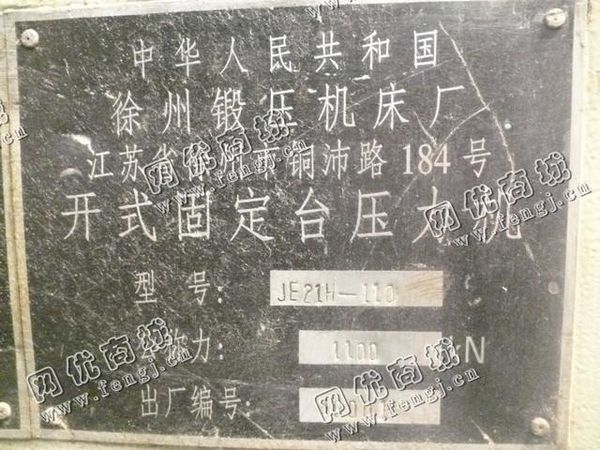 中华人民共和国
徐州锻压机床厂
江苏省徐州市铜沛路184号
开式固定台压力机
型号: JE21H-110
公称力: 1100 kN
出厂编号:
网优商城
www.fengj.cn
网优商城
www.fengj.cn
网优商城
www.fengj.cn
网优商城
www.fengj.cn